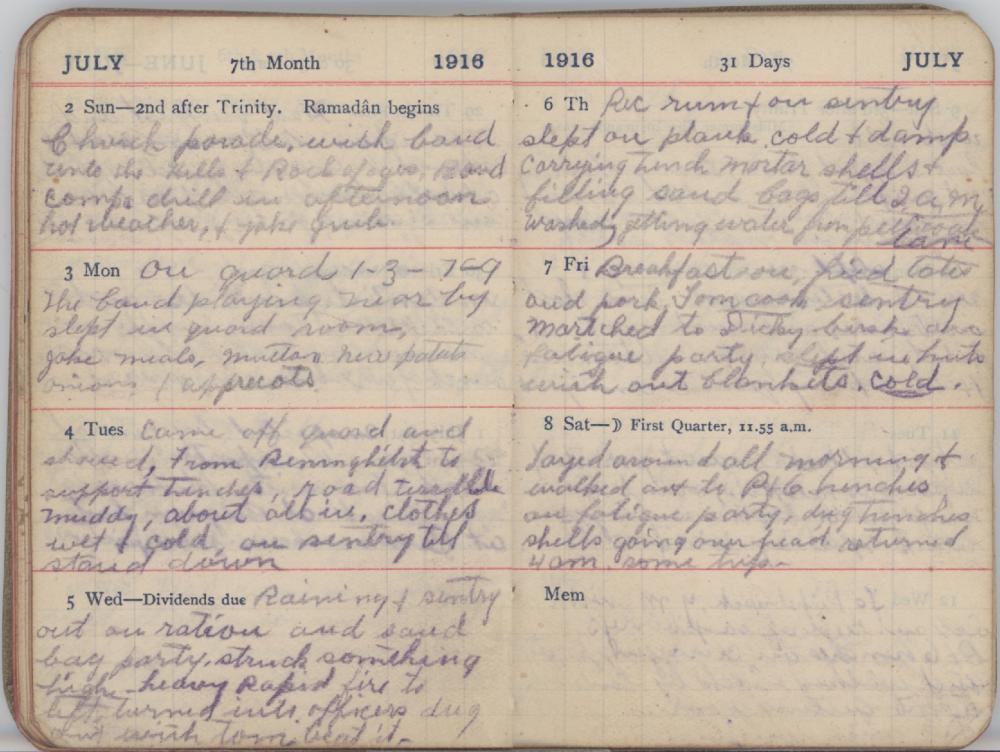 JULY 7th Month 1916
2 Sun—2nd after Trinity. Ramadân begins
Church parade, with band
into the hills & Rock of ages, Band
comp drill in afternoon
hot weather, & jake grub
3 Mon On guard 1-3 - 7-9
The band playing near by
slept in guard room,
jake meals, mutton new potato
onions / appricots
4 Tues Came off guard and
shaved, from Reninghelst to
support trenches, road terrible
muddy, about all in, clothes
wet & cold, on sentry till
stand down
5 Wed—Dividends due Raining & sentry
out on ration and sand
bag party, struck something
high - heavy Rapid fire to
left, turned into officers dug
out with tom, beat it.
1916 31 Days JULY
6 Th Rec rum & on sentry
slept on plank cold & damp
Carrying trench mortar shells &
filling sand bags till 2 a.m,
washed, getting water from
7 Fri Breakfast on, fried tates
and pork, Tom cook sentry
Martched to Dicky bush on a
fatigue party slept in huts
with out blankets. cold.
8 Sat—☽ First Quarter, 11.55 a.m.
Layed around all morning &
walked out to P&6 trenches
on fatigue party, dug trenches
shells going over head returned
4 am some trip-
Mem